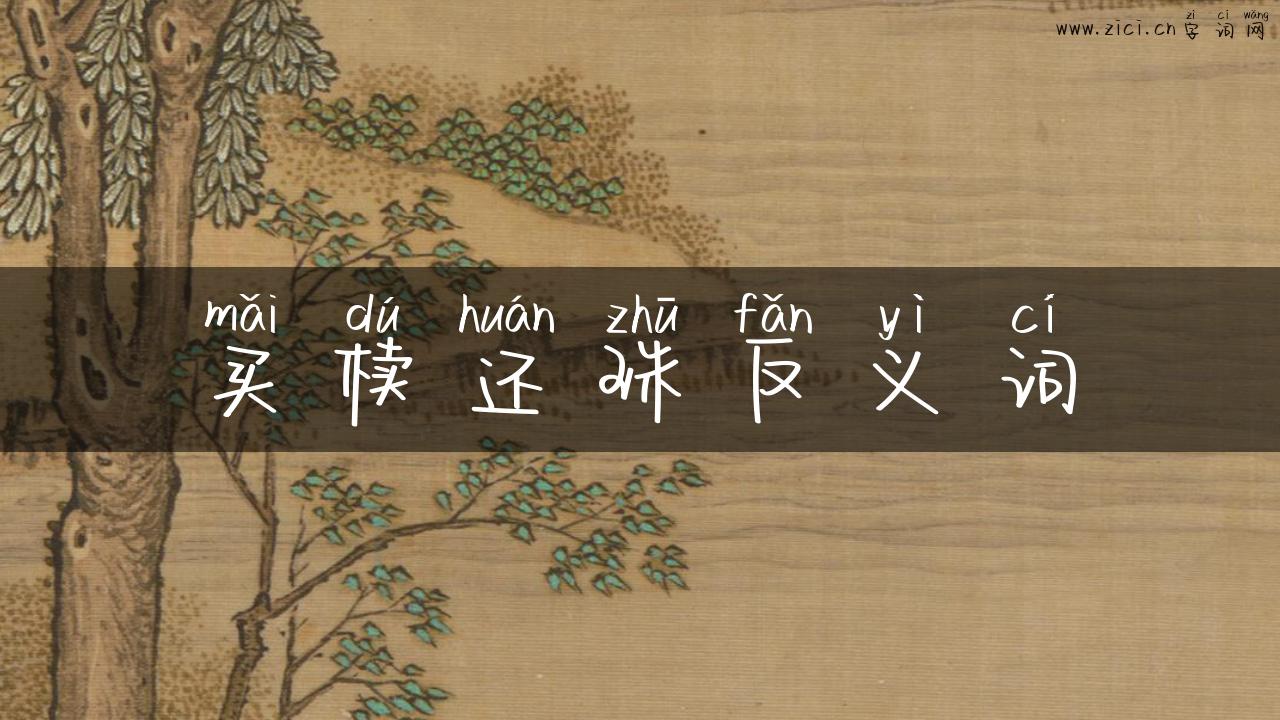 zì cí wǎng
www.zici.cn 字词网
mǎi dú huán zhū fǎn yì cí
买椟还珠反义词